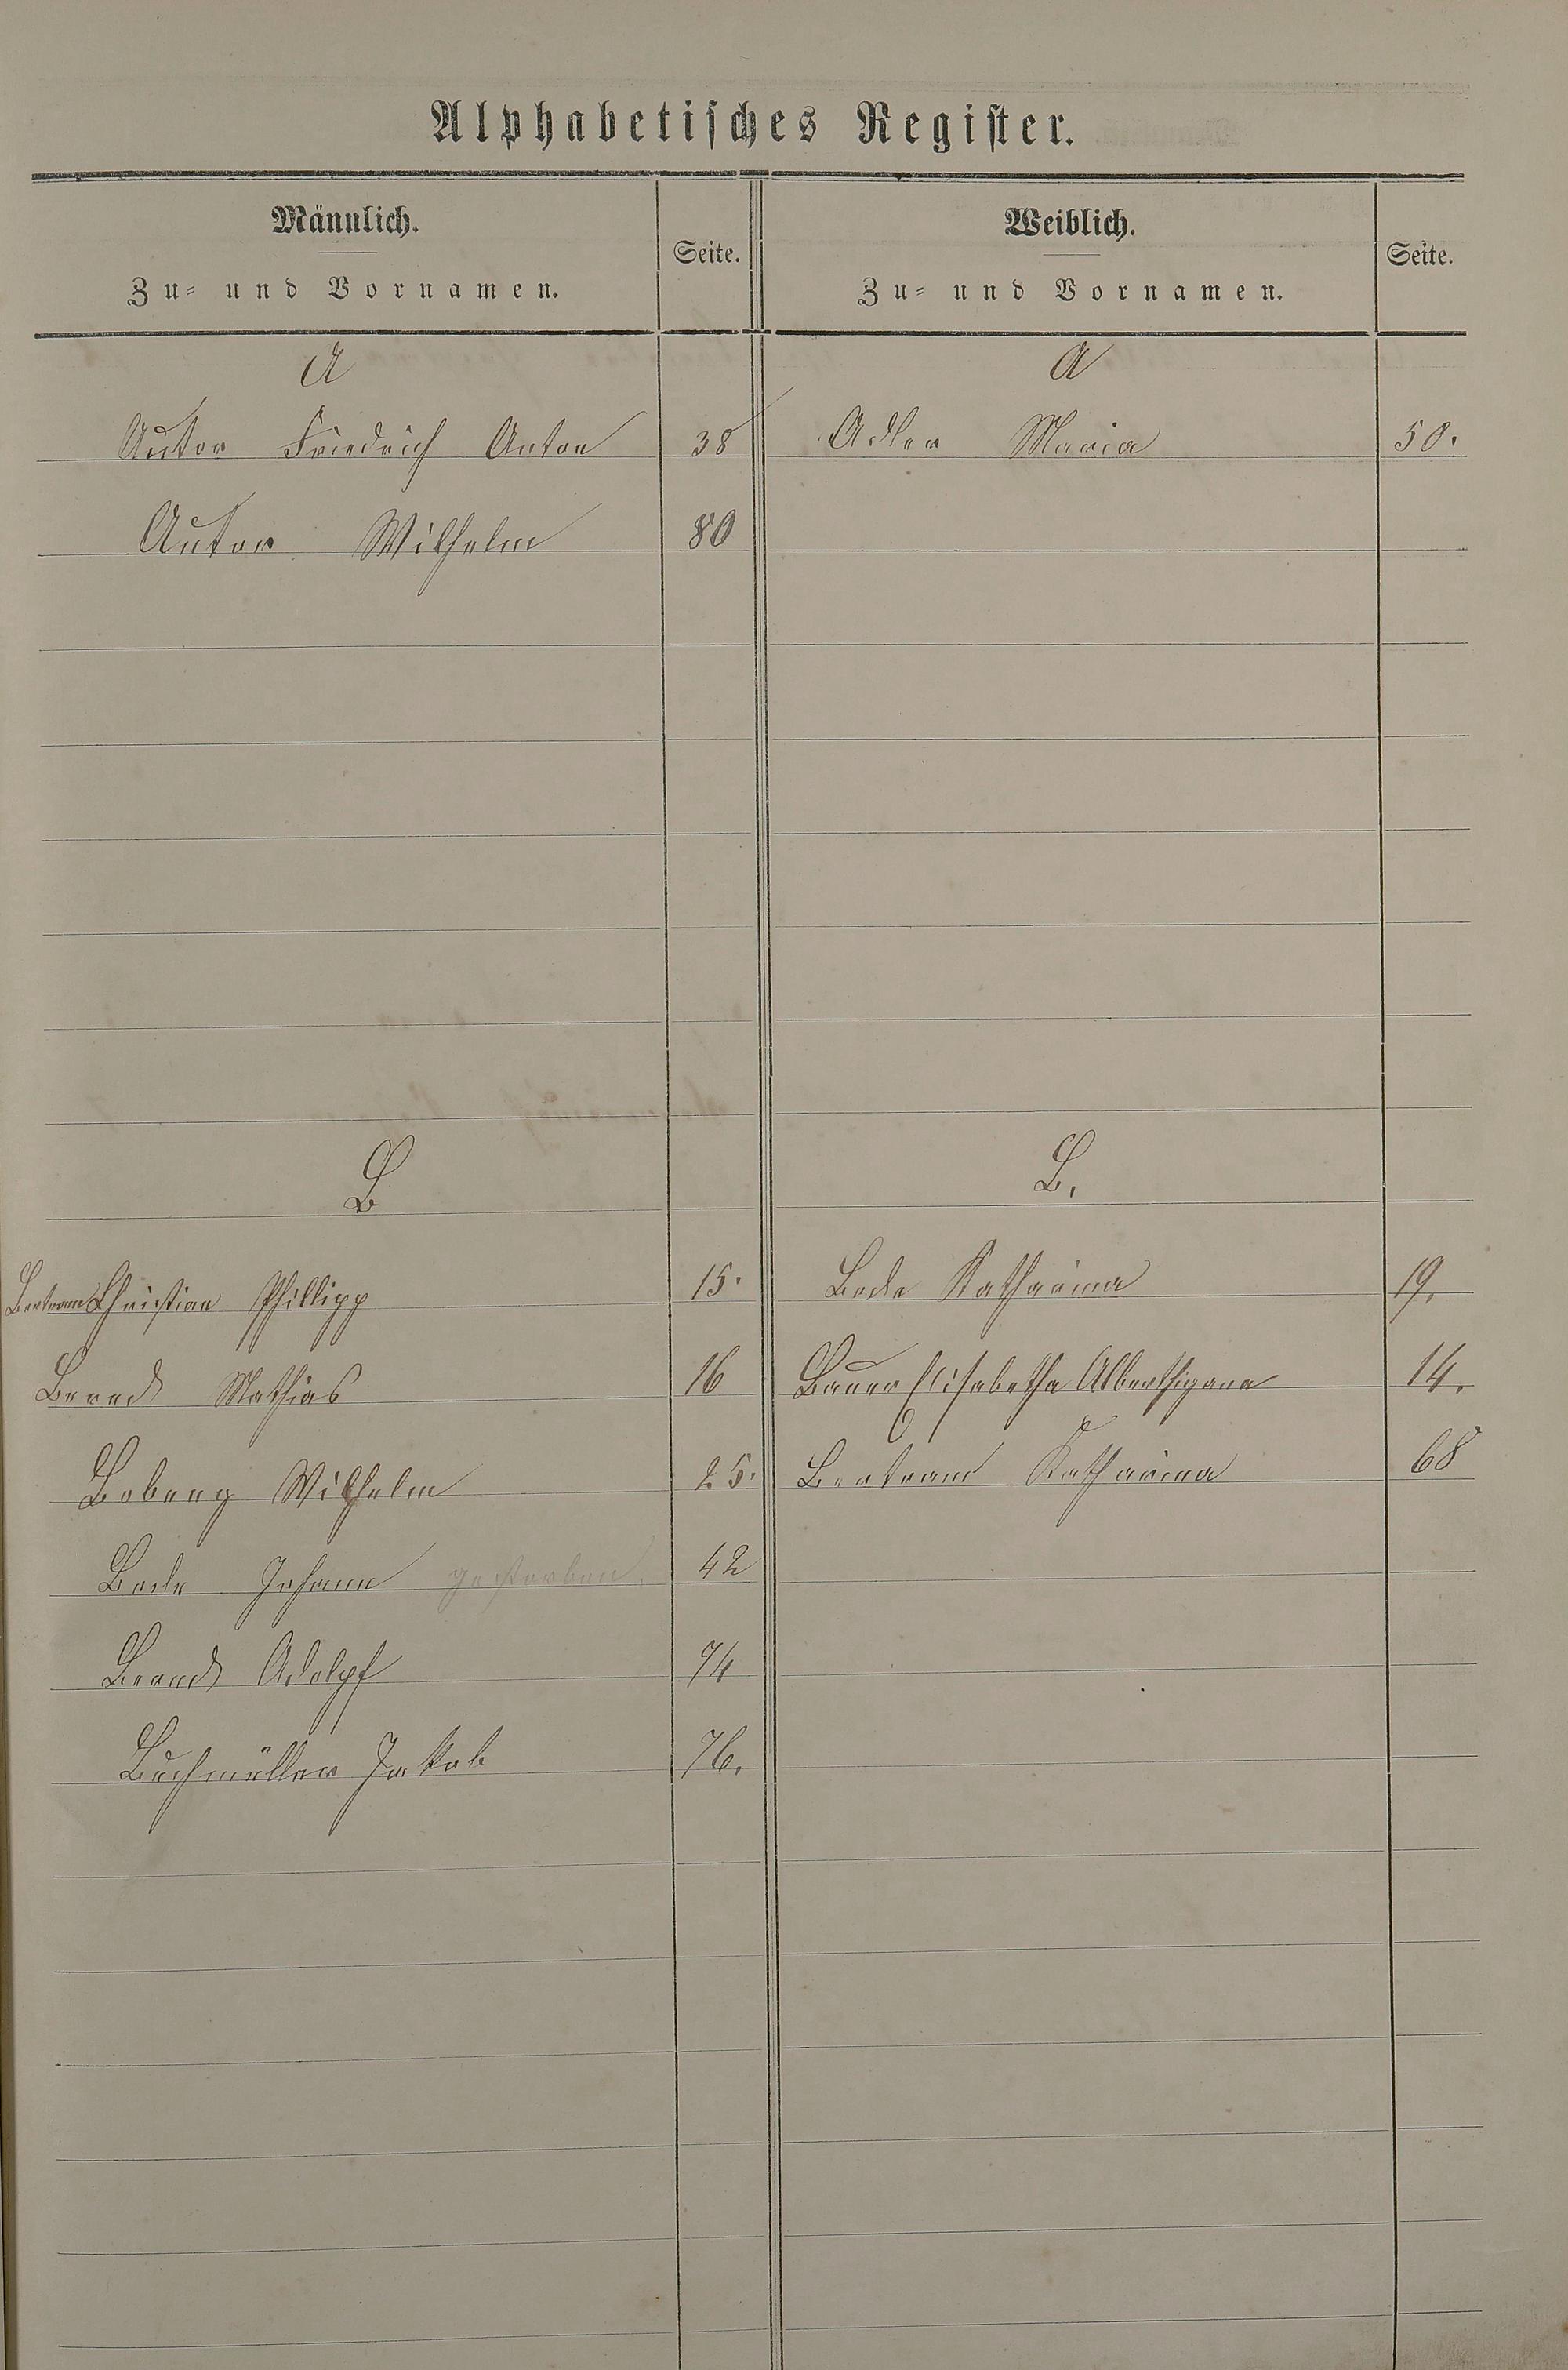 Alphabetisches Register.
Männlich.
Zu- und Vornamen.
Seite.
Weiblich.
Zu- und Vornamen.
Seite.
A
A
Autor Friedrich Anton 38
Adler Maria 50.
Autor Wilhelm 80
B
B.
Bertram Christian Phillipp 15.
Bode Katharina 19.
Berndt Mathias 16
Bauer Elisabetha 14.
Boberg Wilhelm 25.
Bertram Katharina 68
Bode Johann gestorben. 42
Berndt Adolpf 74
Buchmüller Jakob 76.